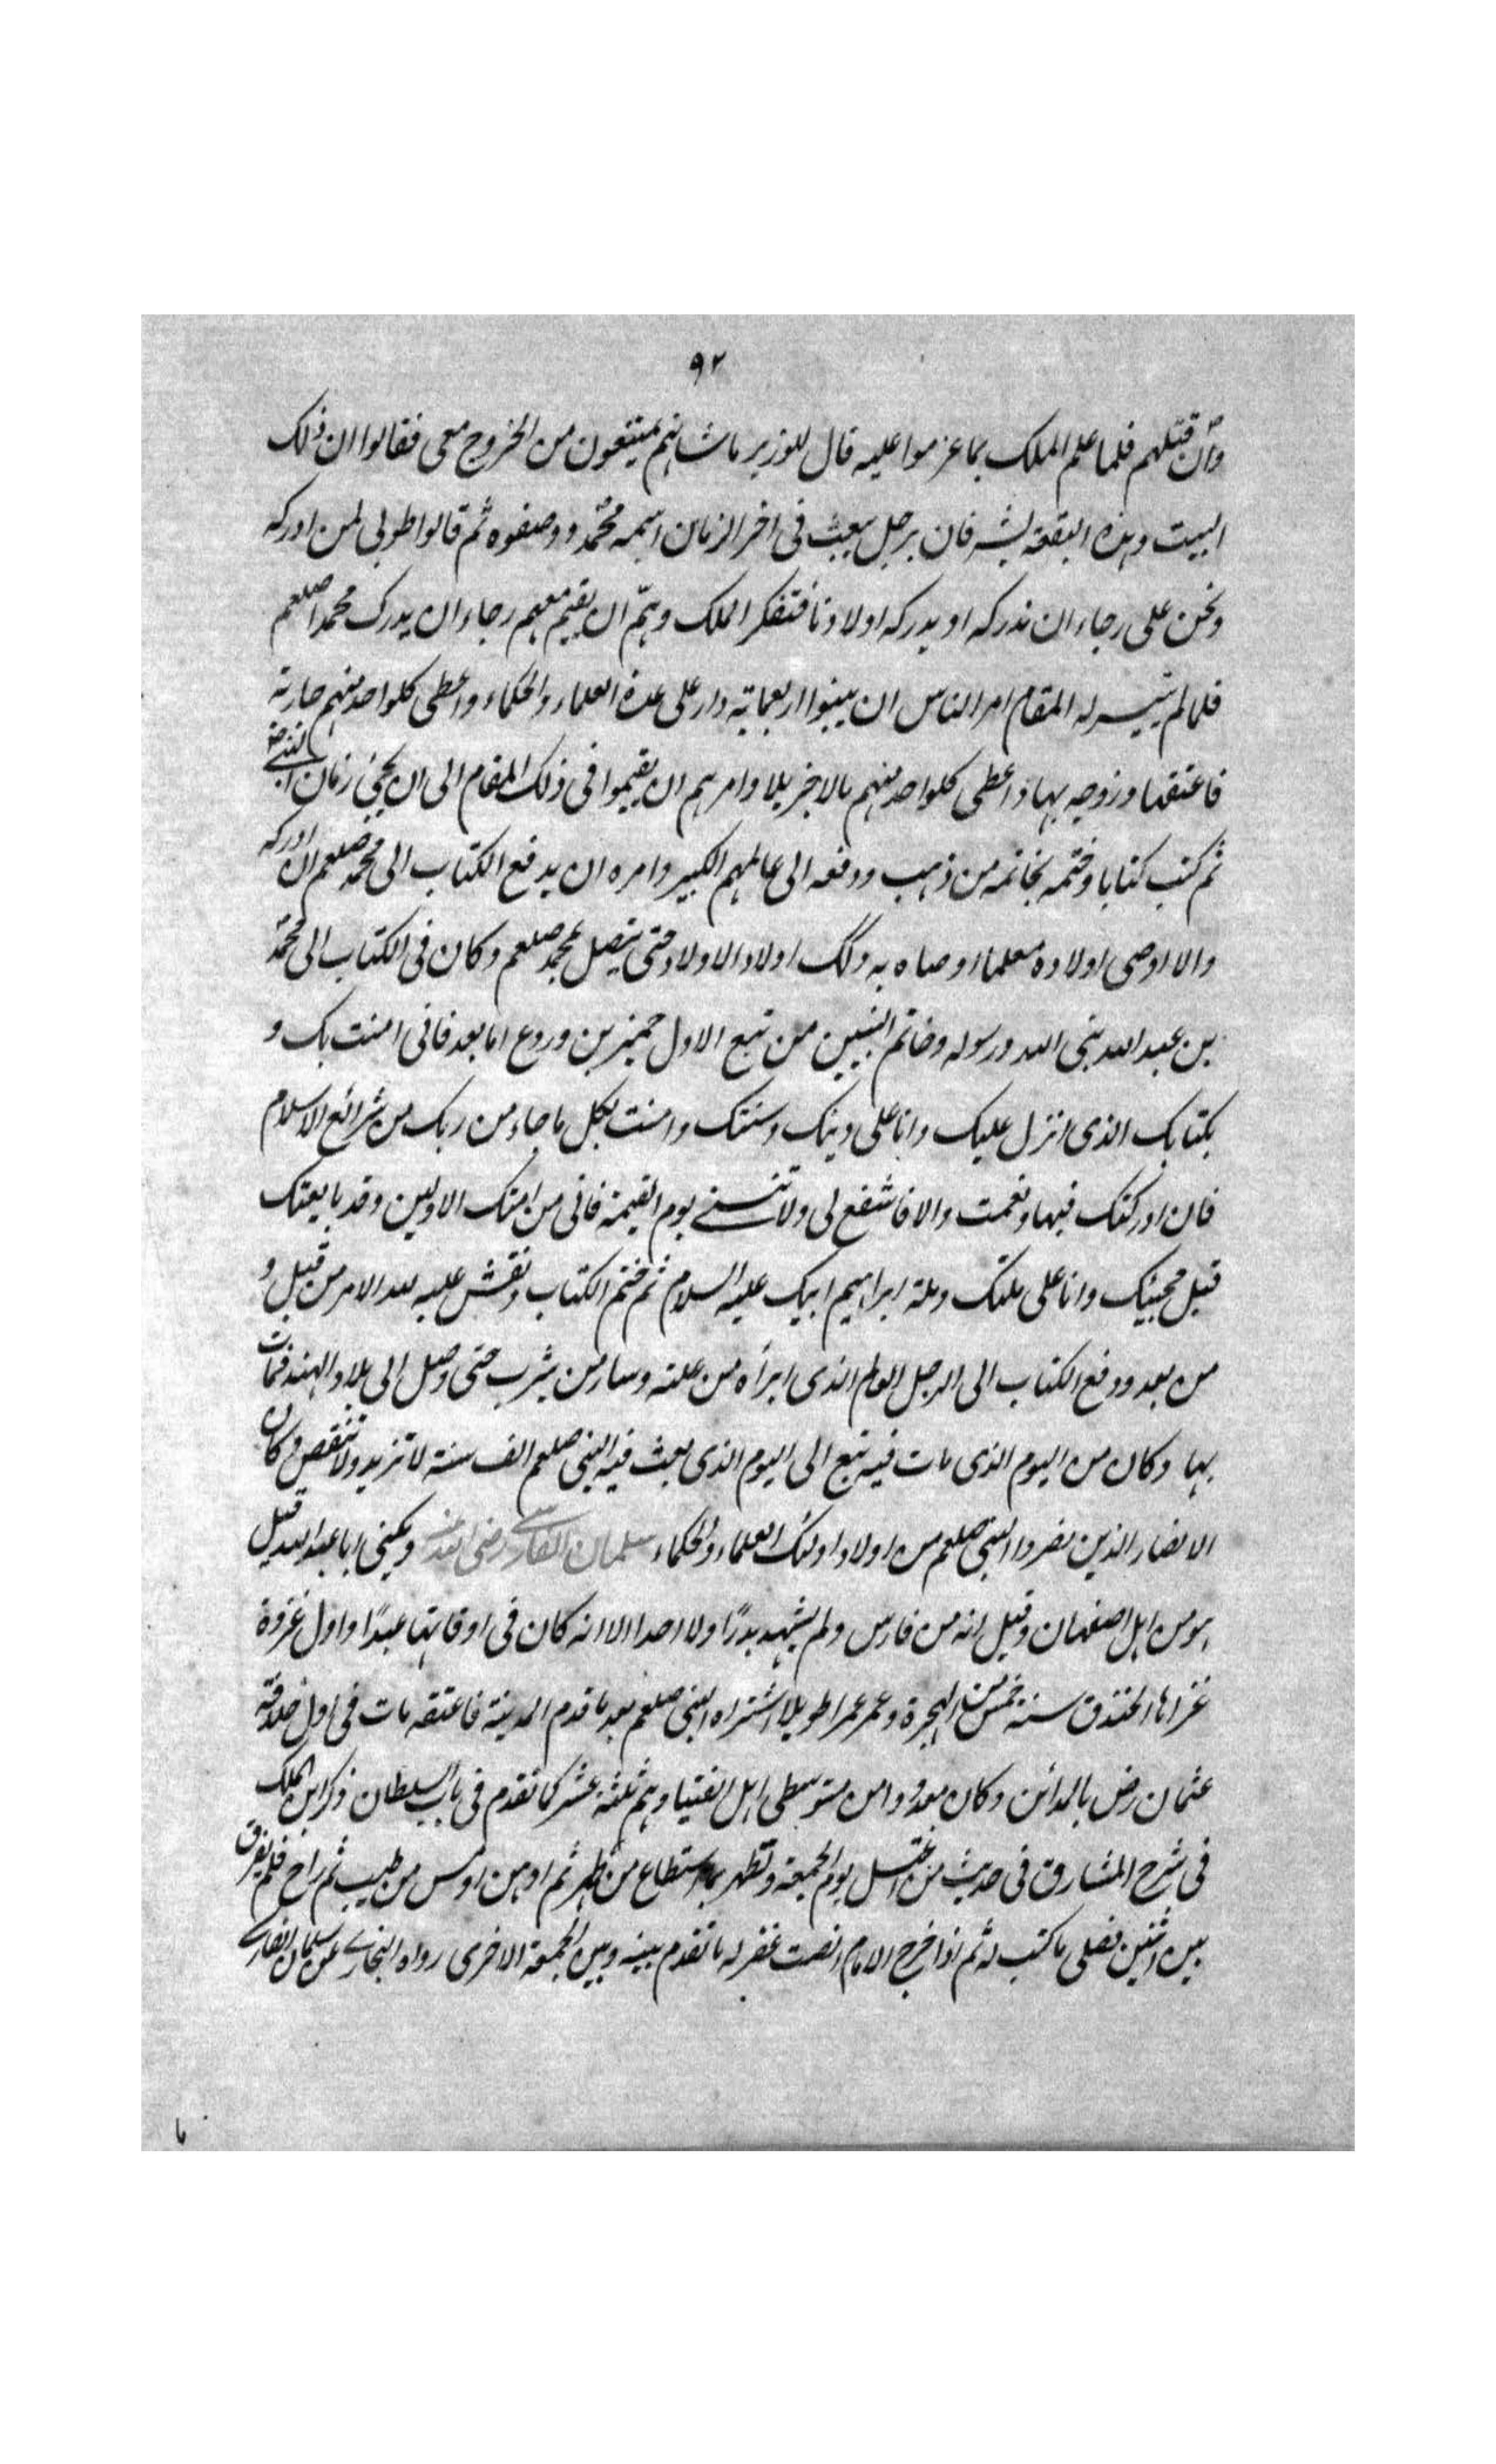 ٩٢
وان قتلهم فلما علم الملك بما عزموا عليه قال للوزير ما شانهم يمتنعون من الخروج معى فقالوا ان ذلك
البيت وهذه البقعة يشرفان برجل يبعث فى اخر الزمان اسمه محمد ووصفوه ثم قالوا طوبى لمن ادركه
ونحن على رجاء ان ندركه او يدركه اولادنا فتفكر الملك وهمّ ان يقيم معهم رجاء ان يدرك محمدا صلعم
فلما لم يتيسر له المقام امر الناس ان يبنوا اربعماية دار على عدة العلماء والحكماء واعطى كلواحد منهم جارية
فاعتقها وزوجه بها واعطى كلواحد منهم مالا جزيلا وامرهم ان يقيموا فى ذلك المقام الى ان يجئ زمان النبى
ثم كتب كتابا وختمه بخاتمه من ذهب ودفعه الى عالمهم الكبير وامره ان يدفع الكتاب الى محمد صلعم ان ادركه
والا اوصى اولاده معلما اوصاه به وكك اولاد الاولاد حتى يتصل بمحمد صلعم وكان فى الكتاب الى محمد
بن عبد الله نبى الله ورسوله وخاتم النبيين من تبع الاول حمير بن وروع اما بعد فانى امنت بك و
بكتابك الذى انزل عليك وانا على دينك وسنتك وامنت بكل ما جاء من ربك من شرائع الاسلام
فان ادركتك فبها ونعمت والا فاشفع لى ولا تنسنى يوم القيمة فانى من امتك الاولين وقد بايعتك
قبل مجيئك وانا على ملتك وملة ابراهيم ابيك عليه السلام ثم ختم الكتاب ونقش عليه لله الامر من قبل و
من بعد ودفع الكتاب الى الرجل العالم الذى ابرأه من علته وسار من يثرب حتى وصل الى بلاد الهند فمات
بها وكان من اليوم الذى مات فيه تبع الى اليوم الذى بعث فيه النبى صلعم الف سنة لا تزيد ولا تنقص وكان
الانصار الذين نصروا النبى صلعم من اولاد اولئك العلماء والحكماء سلمان الفارسى رضى الله عنه ويكنى ابا عبد الله قيل
هو من اهل اصفهان وقيل انه من فارس ولم يشهد بدرًا ولا احدا الا انه كان فى اوقاتها عبدًا واول غزوة
غزاها الخندق سنة خمس من الهجرة وعمر عمرا طويلا اشتراه النبى صلعم بعد ما قدم المدينة فاعتقه مات فى اول خلافة
عثمان رض بالمدائن وكان معدودا من متوسطى اهل الفتيا وهم ثلثة عشر كما تقدم فى باب السلطان ذكر ابن الملك
فى شرح المشارق فى حديث من اغتسل يوم الجمعة وتطهر بما استطاع من طهر ثم ادهن او مس من طيب ثم راح فلم يفرق
بين اثنين فصلى ما كتب له ثم اذا خرج الامام انصت غفر له ما تقدم بينه وبين الجمعة الاخرى رواه البخارى عن سلمان الفارسى
ما